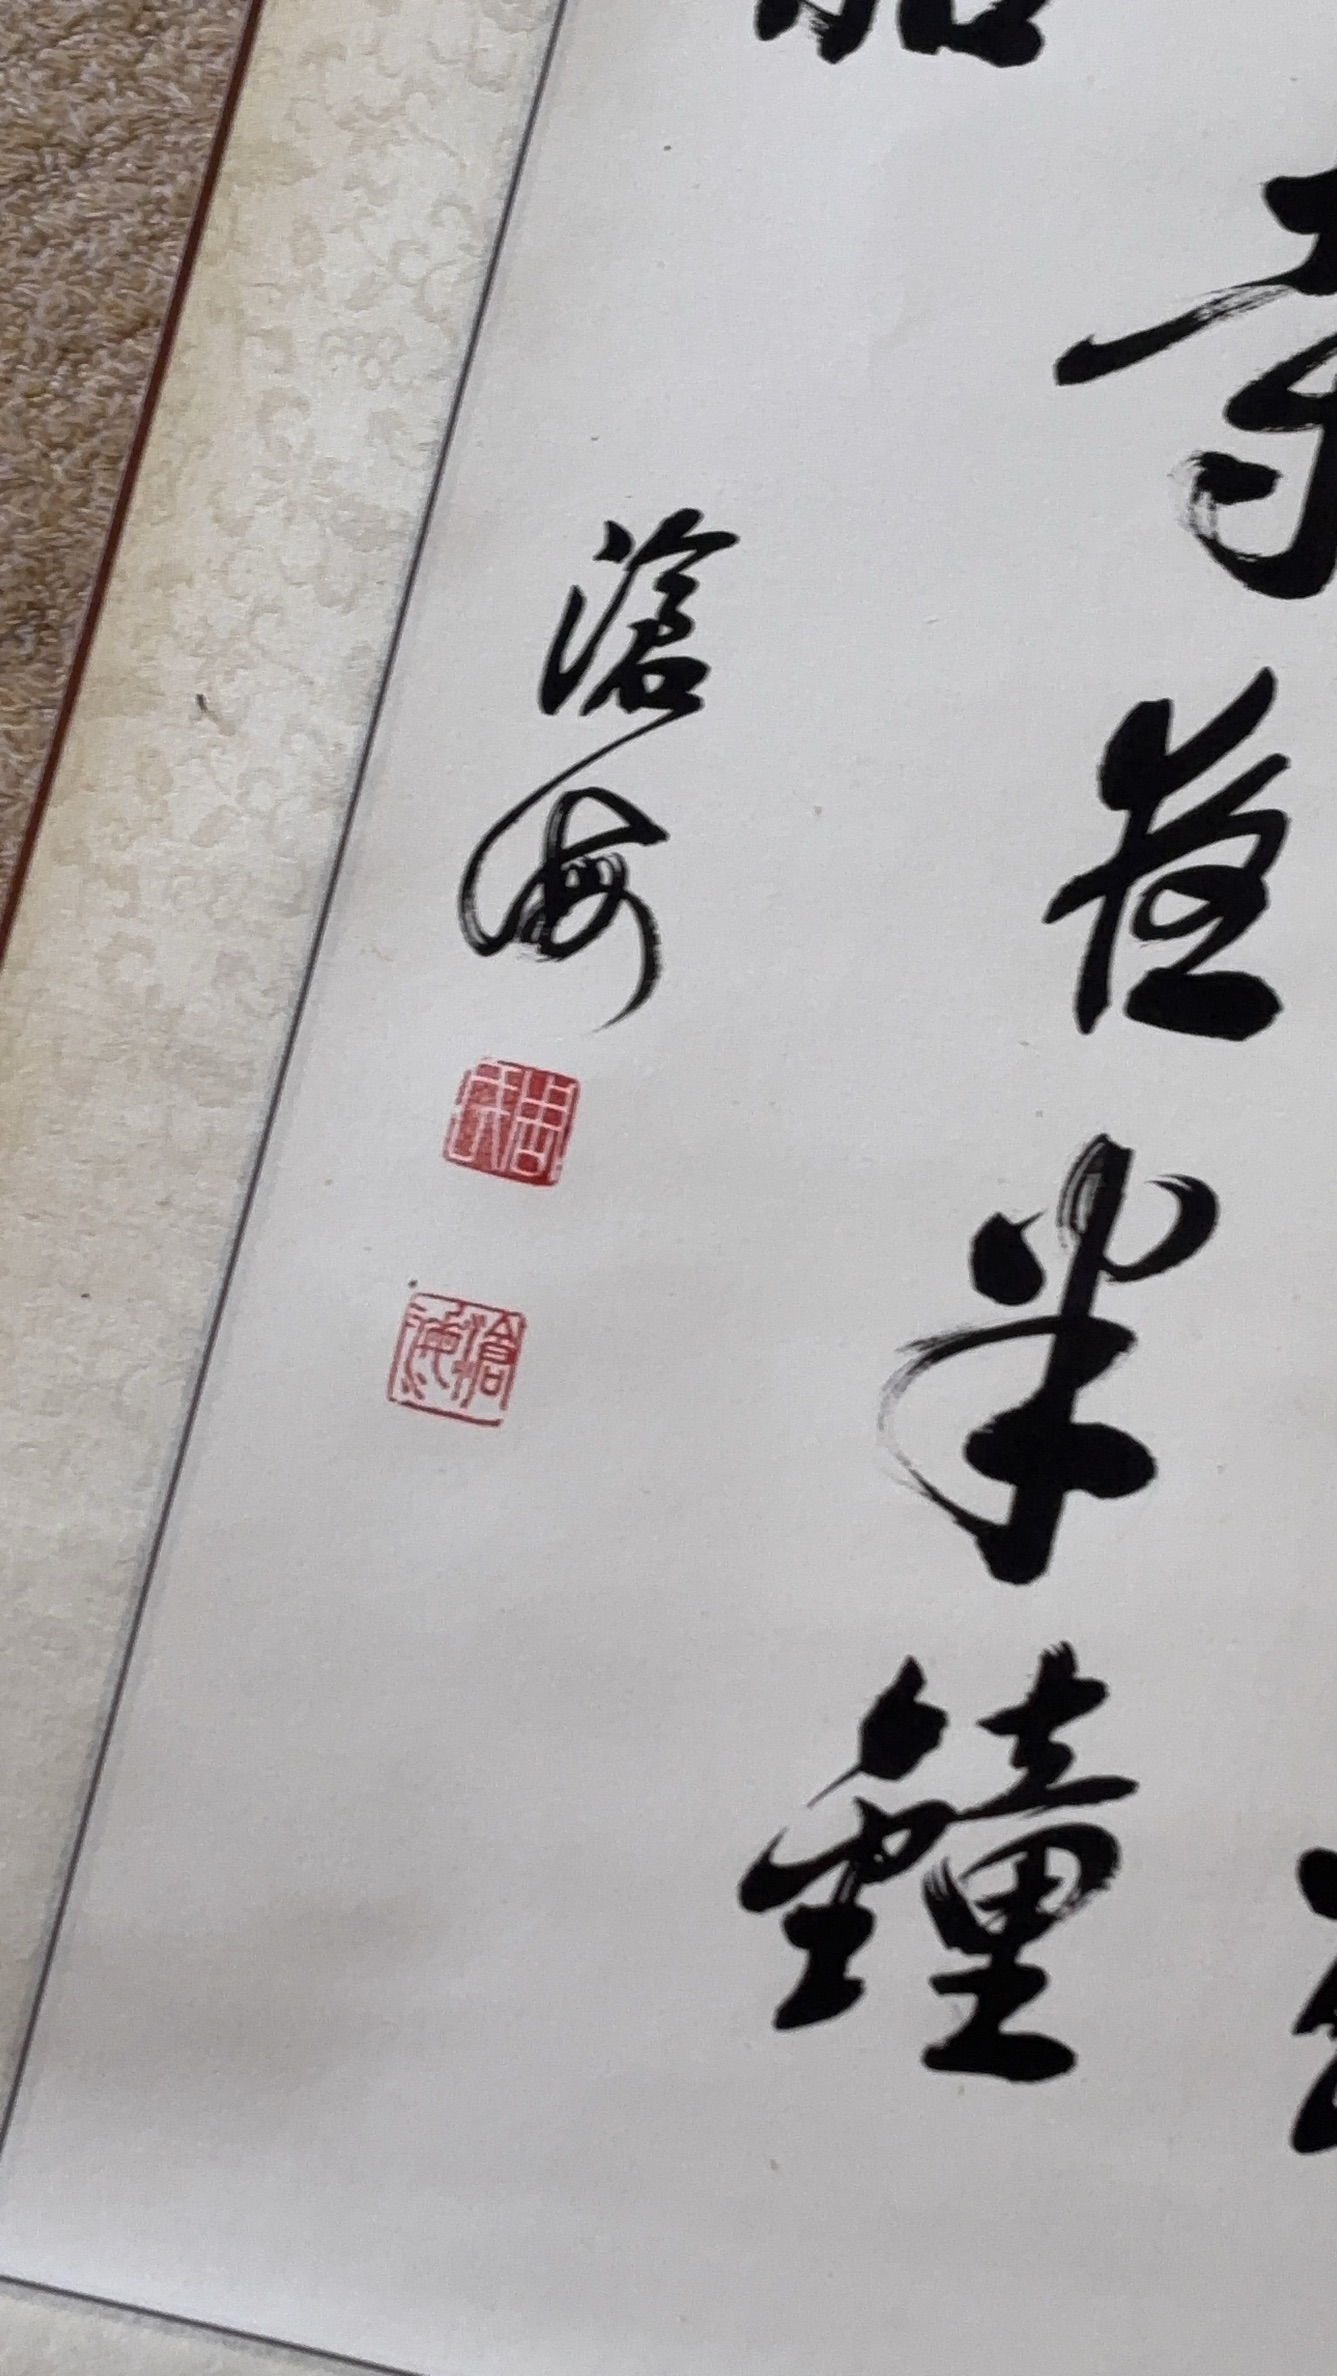 寺夜半鐘
滄海
滄海